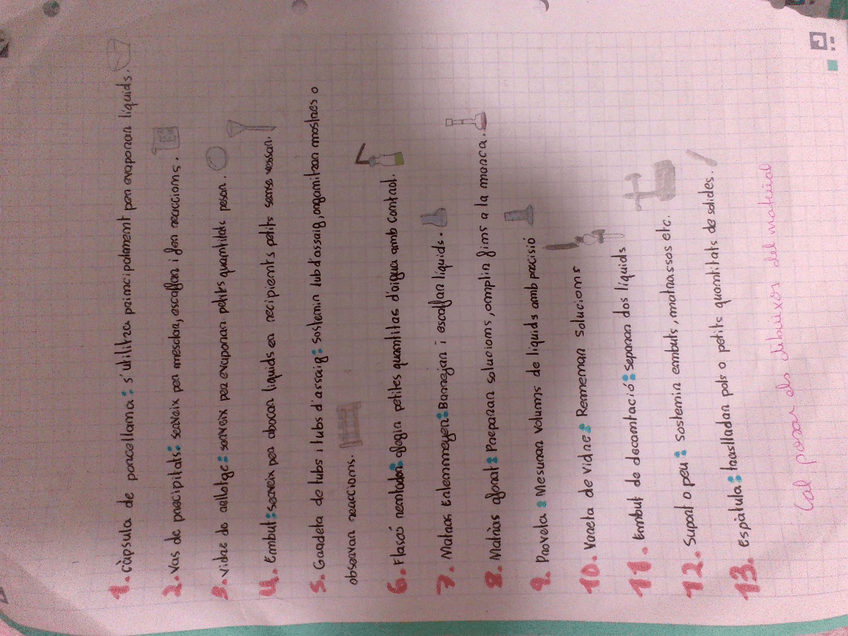 1. Càpsula de porcellana: s'utilitza principalment per evaporar líquids.
2. Vas de precipitats: serveix per mesclar, escalfar i fer reaccions.
3. Vidre de rellotge: serveix per evaporar petits quantitats pesar.
4. Embut: Serveix per abocar líquids en recipients petits sense vessar.
5. Gradeta de tubs i tubs d'assaig: Sostenir tub d'assaig, organitzar mostres o
observar reaccions.
6. Flascó rentador: afegir petites quantitas d'aigua amb control.
7. Matras Erlenmeyer: Barrejar i escalfar líquids.
8. Matràs aforat: Preparar solucions, omplir fins a la marca.
9. Proveta: Mesurar volums de líquids amb precisió
10. Vareta de vidre: Remenar solucions
11. Embut de decantació: separar dos líquids
12. Suport o peu: Sostenir embuts, matrassos etc.
13. Espàtula: traslladar pols o petits quantitats de sòlides.
Cal posar els dibuixos del material